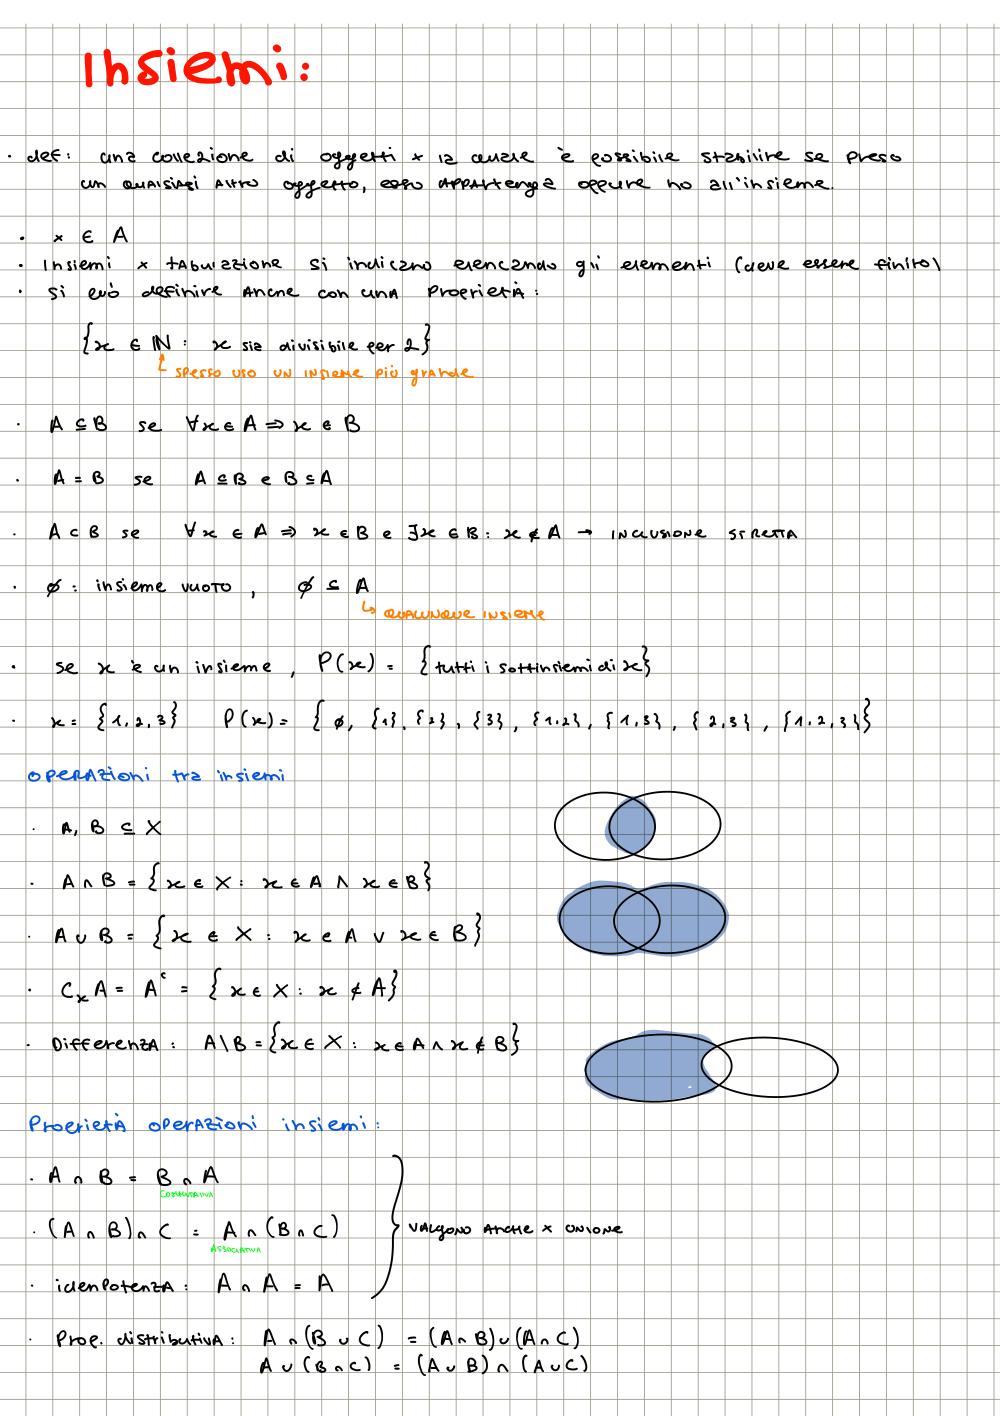 Insiemi:
· def: una collezione di oggetti x la quale è possibile stabilire se preso
un qualsiasi altro oggetto, esso appartenga oppure no all'insieme.
· x ∈ A
· Insiemi x tabulazione si indicano elencando gli elementi (deve essere finito)
· si può definire anche con una proprietà:
{x ∈ ℕ : x sia divisibile per 2}
spesso uso un insieme più grande
· A ⊆ B se ∀x ∈ A ⇒ x ∈ B
· A = B se A ⊆ B e B ⊆ A
· A ⊂ B se ∀x ∈ A ⇒ x ∈ B e ∃x ∈ B : x ∉ A → inclusione stretta
· ∅ : insieme vuoto , ∅ ⊆ A
↳ qualunque insieme
· se x è un insieme , P(x) = {tutti i sottinsiemi di x}
· x = {1,2,3} P(x) = { ∅, {1}, {2}, {3}, {1,2}, {1,3}, {2,3}, {1,2,3}}
operazioni tra insiemi
· A, B ⊆ X
· A ∩ B = {x ∈ X : x ∈ A ∧ x ∈ B}
· A ∪ B = {x ∈ X : x ∈ A ∨ x ∈ B}
· CₓA = Aᶜ = {x ∈ X : x ∉ A}
· Differenza : A \ B = {x ∈ X : x ∈ A ∧ x ∉ B}
Proprietà operazioni insiemi :
· A ∩ B = B ∩ A
commutativa
· (A ∩ B) ∩ C = A ∩ (B ∩ C)
associativa
valgono anche x unione
· idenpotenza : A ∩ A = A
· Prop. distributiva : A ∩ (B ∪ C) = (A ∩ B) ∪ (A ∩ C)
A ∪ (B ∩ C) = (A ∪ B) ∩ (A ∪ C)